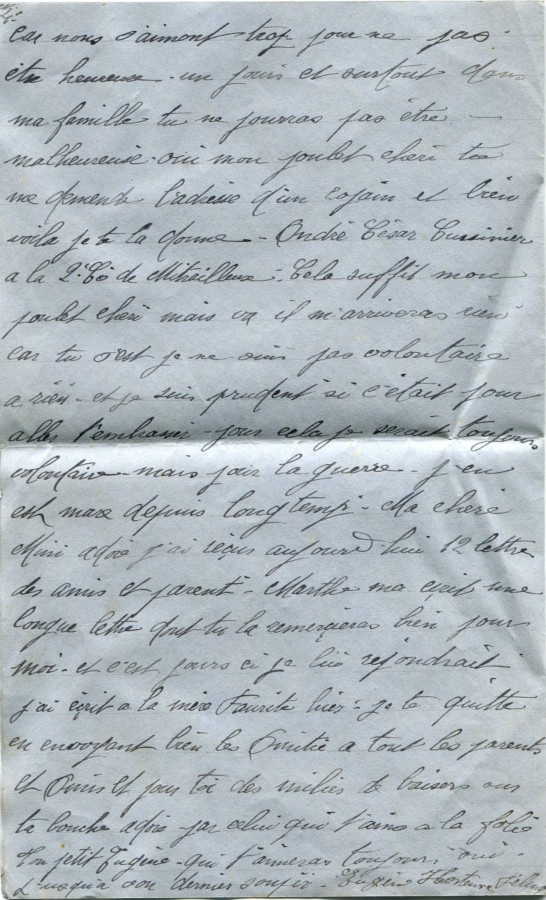 car nous s'aimont trop pour ne pas
être heureuse - un jours et surtout dans
ma famille tu ne pourras pas être -
malheureuse - oui mon poulet chéri tu
me demende l'adresse d'un copain et bien
voila je te la donne - André César Cuisinier
a la 2e Cie de Mitrailleuse - Cela suffit mon
poulet chéri mais va il m'arriveras rien
car tu s'est je ne suis pas volontaire
a rien - et je suis prudent si c'était pour
aller t'embrasser - pour cela je serait toujours
volontaire - mais pair la guerre - j'en
est mare depuis longtemp - Ma chère
Mini adoré j'ai reçus aujourd hui 12 lettre
des amis et parent - Marthe ma écrit une
longue lettre dont tu la remerçieras bien pour
moi - et c'est jours ci je lui repondrait
j'ai écrit a la mère hier - je te quitte
en envoyant bien les Amitié a tout les parents
et Amis et pour toi des milies de baisers sur
ta bouche adoré par celui qui t'aime a la folie
Ton petit Eugène - qui t'aimeras toujours oui -
Jusqu'a son dernier soupir - Eugène